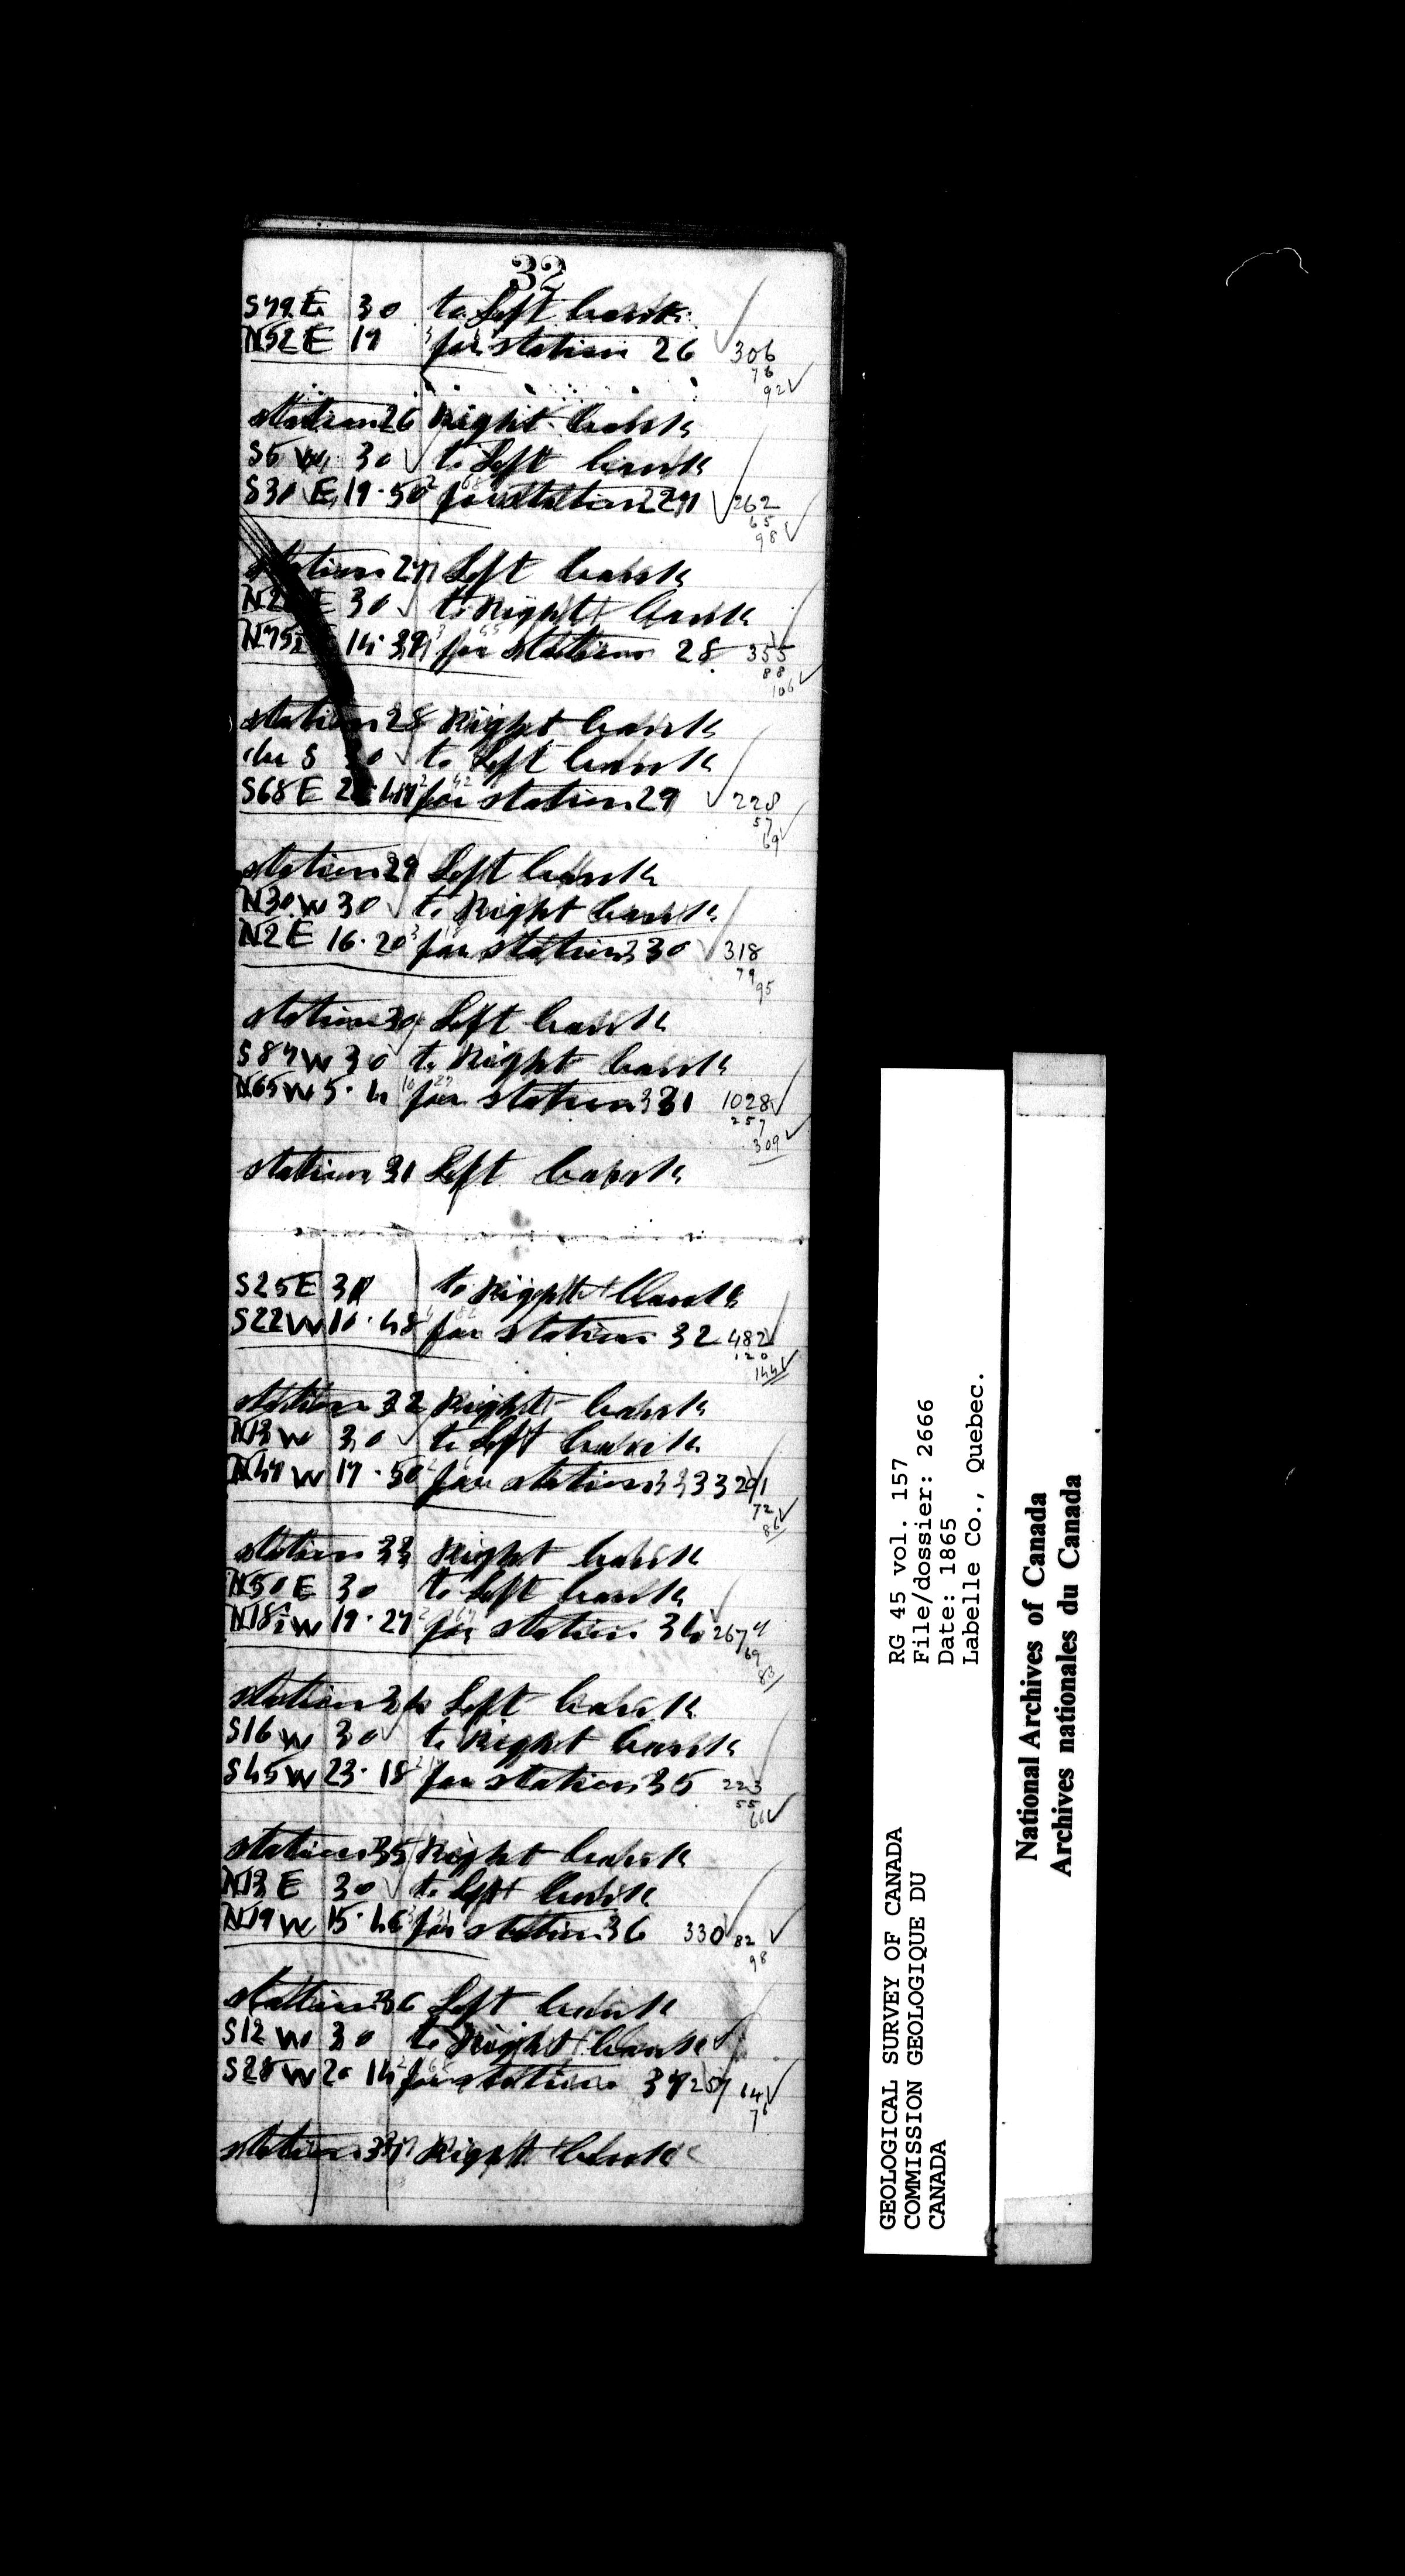 32
S79E 30 to Left bank
N52E 19 for station 26 306
76
92
station 26 Right bank
S5W 30 to Left bank
S30E 19·50 for station 27 262
65
98
station 27 Left bank
30 to Right bank
14·37 for station 28 355
88
106
station 28 Right bank
due S 30 to Left bank
S68E for station 29 228
57
69
station 29 Left bank
N30W 30 to Right bank
N2E 16·20 for station 30 318
79
95
station 30 Left bank
S87W 30 to Right bank
N65W 5·4 for station 31 1028
257
309
station 31 Left bank
S25E 30 to Right bank
S22W 10·48 for station 32 482
120
144
station 32 Right bank
N13W 30 to Left bank
N47W 17·50 for station 33 291
72
86
station 33 Right bank
N50E 30 to Left bank
N18½W 19·27 for station 34 267
69
83
station 34 Left bank
S16W 30 to Right bank
S45W 23·18 for station 35 223
55
66
station 35 Right bank
N13E 30 to Left bank
N19W 15·46 for station 36 330 82
98
station 36 Left bank
S12W 30 to Right bank
S28W 20 14 for station 37 257 64
76
station 37 Right bank
GEOLOGICAL SURVEY OF CANADA RG 45 vol. 157
COMMISSION GEOLOGIQUE DU File/dossier: 2666
CANADA Date: 1865
Labelle Co., Quebec.
National Archives of Canada
Archives nationales du Canada